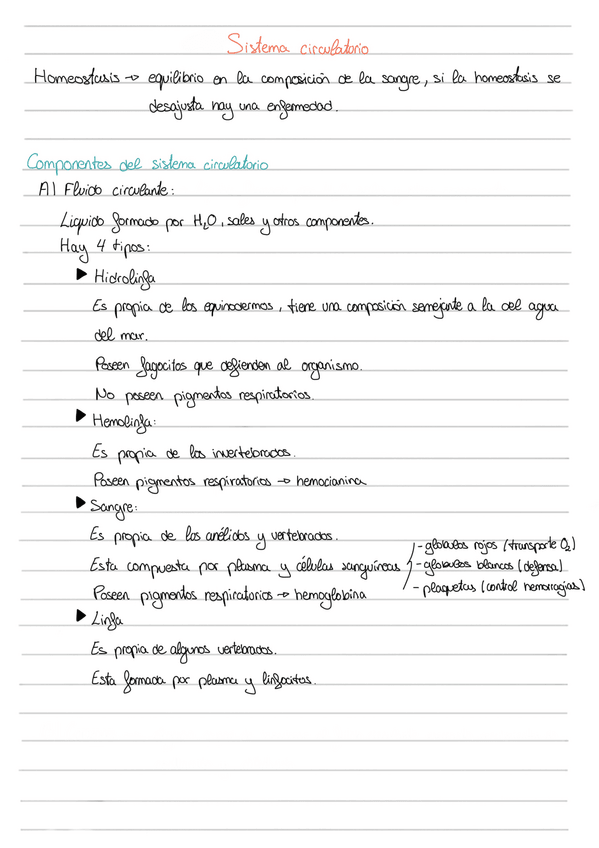 Sistema circulatorio
Homeostasis → equilibrio en la composición de la sangre, si la homeostasis se
desajusta hay una enfermedad.
Componentes del sistema circulatorio
A) Fluido circulante:
Liquido formado por H₂O, sales y otros componentes.
Hay 4 tipos:
▶ Hidrolinfa
Es propia de los equinodermos, tiene una composición semejante a la del agua
del mar.
Poseen fagocitos que defienden al organismo.
No poseen pigmentos respiratorios.
▶ Hemolinfa:
Es propia de los invertebrados.
Poseen pigmentos respiratorios → hemocianina
▶ Sangre:
Es propia de los anélidos y vertebrados.
Esta compuesta por plasma y células sanguíneas
- globulos rojos (transporte O₂)
- globulos blancos (defensa)
- plaquetas (control hemorragias)
Poseen pigmentos respiratorios → hemoglobina
▶ Linfa
Es propia de algunos vertebrados.
Esta formada por plasma y linfocitos.